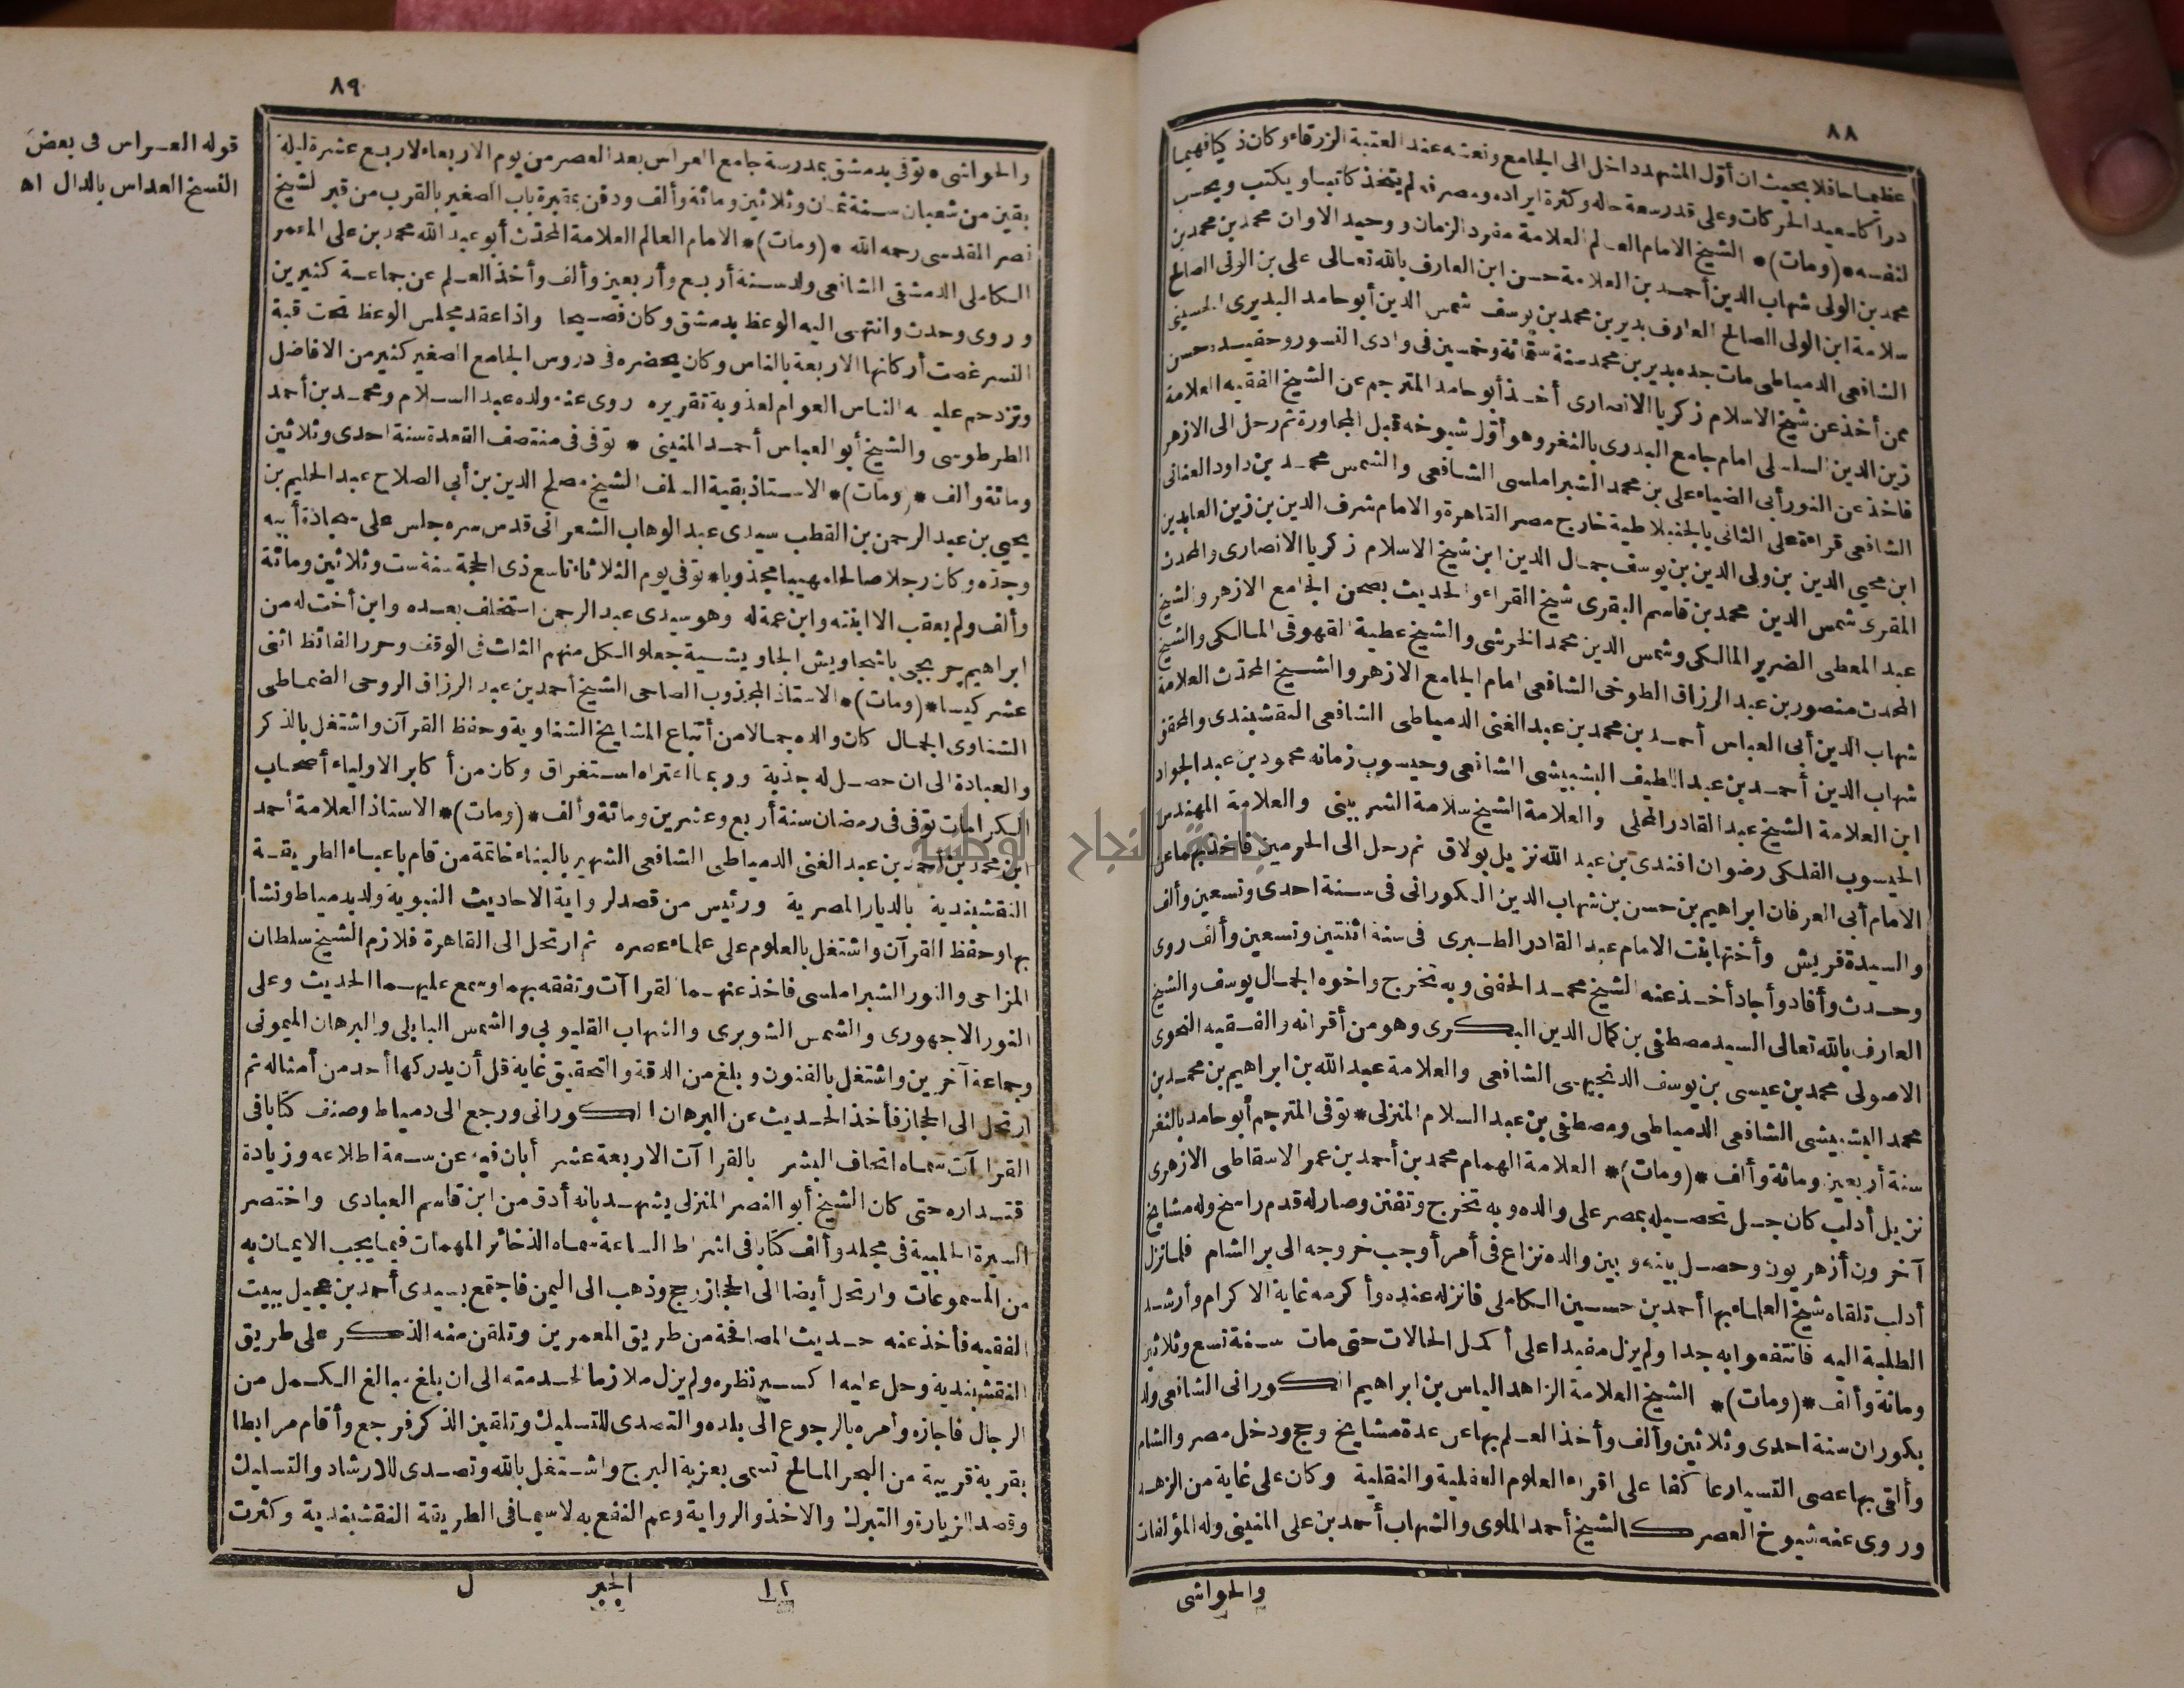 ٨٨
عظيما حافلا بحيث ان أول المشهد داخل الى الجامع ونعشه عند العتبة الزرقاء وكان ذكيا فهيما
دراكا سعيد الحركات وعلى قدر سعة حاله وكثرة ايراده ومصرفه لم يتخذ كاتبا ويكتب ويحسب
لنفسه *(ومات)* الشيخ الامام العالم العلامة مفرد الزمان ووحيد الاوان محمد بن محمد بن
محمد بن الولى شهاب الدين أحمد بن العلامة حسن ابن العارف بالله تعالى على بن الولى الصالح
سلامة ابن الولى الصالح العارف بدير بن محمد بن يوسف شمس الدين أبو حامد البديرى الحسينى
الشافعى الدمياطى مات جده بدير بن محمد سنة ستمائة وخمسين فى وادى النسور وحفيده حسن
ممن أخذ عن شيخ الاسلام زكريا الانصارى أخذ أبو حامد المترجم عن الشيخ الفقيه العلامة
زين الدين السلسلى امام جامع البدرى بالثغر وهو أول شيوخه قبل المجاورة ثم رحل الى الازهر
فاخذ عن النور أبى الضياء على بن محمد الشبراملسى الشافعى والشمس محمد بن داود العنانى
الشافعى قراءة على الثانى بالجنبلاطية خارج مصر القاهرة والامام شرف الدين بن زين العابدين
ابن محيى الدين بن ولى الدين بن يوسف جمال الدين ابن شيخ الاسلام زكريا الانصارى والمحدث
المقرى شمس الدين محمد بن قاسم البقرى شيخ القراء والحديث بصحن الجامع الازهر والشيخ
عبد المعطى الضرير المالكى وشمس الدين محمد الخرشى والشيخ عطية القهوقى المالكى والشيخ
المحدث منصور بن عبد الرزاق الطوخى الشافعى امام الجامع الازهر والشيخ المحدث العلامة
شهاب الدين أبى العباس أحمد بن محمد بن عبد الغنى الدمياطى الشافعى النقشبندى والمحقق
شهاب الدين أحمد بن عبد اللطيف البشبيشى الشافعى وحيسوب زمانه محمود بن عبد الجواد
ابن العلامة الشيخ عبد القادر المحلى والعلامة الشيخ سلامة الشربينى والعلامة المهندس
الحيسوب الفلكى رضوان افندى بن عبد الله نزيل بولاق ثم رحل الى الحرمين فاخذ بهما عن
الامام أبى العرفان ابراهيم بن حسن بن شهاب الدين الكورانى فى سنة احدى وتسعين وألف
والسيدة قريش وأختها بنت الامام عبد القادر الطبرى فى سنة اثنتين وتسعين وألف روى
وحدث وأفاد وأجاد أخذ عنه الشيخ محمد الحفنى وبه تخرج واخوه الجمال يوسف والشيخ
العارف بالله تعالى السيد مصطفى بن كمال الدين البكرى وهو من أقرانه والفقيه النحوى
الاصولى محمد بن عيسى بن يوسف الدنجيهى الشافعى والعلامة عبد الله بن ابراهيم بن محمد بن
محمد البشبيشى الشافعى الدمياطى ومصطفى بن عبد السلام المنزلى * توفى المترجم أبو حامد بالثغر
سنة أربعين ومائة وألف *(ومات)* العلامة الهمام محمد بن أحمد بن عمر الاسقاطى الازهرى
نزيل أدلب كان جل تحصيله بمصر على والده وبه تخرج وتفنن وصار له قدم راسخ وله مشايخ
آخرون أزهريون وحصل بينه وبين والده نزاع فى أمر أوجب خروجه الى بر الشام فلما نزل
أدلب تلقاه شيخ العلماء بها أحمد بن حسين الكاملى فانزله عنده وأكرمه غاية الاكرام وأرشد
الطلبة اليه فانتفعوا به جدا ولم يزل مفيدا على أكمل الحالات حتى مات سنة تسع وثلاثين
ومائة وألف *(ومات)* الشيخ العلامة الزاهد الياس بن ابراهيم الكورانى الشافعى ولد
بكوران سنة احدى وثلاثين وألف وأخذ العلم بها عن عدة مشايخ وحج ودخل مصر والشام
وألقى بها عصى التسيار عاكفا على اقراء العلوم العقلية والنقلية وكان على غاية من الزهد
وروى عنه شيوخ العصر كالشيخ أحمد الملوى والشهاب أحمد بن على المنينى وله المؤلفات
والحواشى
٨٩
والحواشى * توفى بدمشق بمدرسة جامع العراس بعد العصر من يوم الاربعاء لاربع عشرة ليلة
بقين من شعبان سنة ثمان وثلاثين ومائة وألف ودفن بمقبرة باب الصغير بالقرب من قبر الشيخ
نصر المقدسى رحمه الله *(ومات)* الامام العالم العلامة المحدث أبو عبد الله محمد بن على المعمر
الكاملى الدمشقى الشافعى ولد سنة أربع وأربعين وألف وأخذ العلم عن جماعة كثيرين
وروى وحدث وانتهى اليه الوعظ بدمشق وكان فصيحا واذا عقد مجلس الوعظ تحت قبة
النسر غصت أركانها الاربعة بالناس وكان يحضره فى دروس الجامع الصغير كثير من الافاضل
وتزدحم عليه الناس العوام لعذوبة تقريره روى عنه ولده عبد السلام ومحمد بن أحمد
الطرطوسى والشيخ أبو العباس أحمد المنينى * توفى فى منتصف القعدة سنة احدى وثلاثين
ومائة وألف *(ومات)* الاستاذ بقية السلف الشيخ مصلح الدين بن أبى الصلاح عبد الحليم بن
يحيى بن عبد الرحمن بن القطب سيدى عبد الوهاب الشعرانى قدس سره جلس على سجادة أبيه
وجده وكان رجلا صالحا مهيبا مجذوبا * توفى يوم الثلاثاء تاسع ذى الحجة سنة ست وثلاثين ومائة
وألف ولم يعقب الا ابنته وابن عمة له وهو سيدى عبد الرحمن استخلف بعده وابن أخت له من
ابراهيم جربجى باشجاويش الجاويشية جعلوا لكل منهم الثلث فى الوقف وحرر الفائظ اثنى
عشر كيسا *(ومات)* الاستاذ المجذوب الصاحى الشيخ أحمد بن عبد الرزاق الروحى الضماطى
الشناوى الجمال كان والده جمالا من أتباع المشايخ الشناوية وحفظ القرآن واشتغل بالذكر
والعبادة الى ان حصل له جذبة وربما اعتراه استغراق وكان من أكابر الاولياء أصحاب
الكرامات توفى فى رمضان سنة أربع وعشرين ومائة وألف *(ومات)* الاستاذ العلامة أحمد
ابن محمد بن أحمد بن عبد الغنى الدمياطى الشافعى الشهير بالبناء خاتمة من قام باعباء الطريقة
النقشبندية بالديار المصرية ورئيس من قصد لرواية الاحاديث النبوية ولد بدمياط ونشأ
بها وحفظ القرآن واشتغل بالعلوم على علماء عصره ثم ارتحل الى القاهرة فلازم الشيخ سلطان
المزاحى والنور الشبراملسى فاخذ عنهما القراآت وتفقه بهما وسمع عليهما الحديث وعلى
النور الاجهورى والشمس الشوبرى والشهاب القليوبى والشمس البابلى والبرهان الميمونى
وجماعة آخرين واشتغل بالفنون وبلغ من الدقة والتحقيق غاية قل أن يدركها أحد من أمثاله ثم
ارتحل الى الحجاز فأخذ الحديث عن البرهان الكورانى ورجع الى دمياط وصنف كتابا فى
القراآت سماه اتحاف البشر بالقراآت الاربعة عشر أبان فيه عن سعة اطلاعه وزيادة
اقتداره حتى كان الشيخ أبو النصر المنزلى يشهد بانه أدق من ابن قاسم العبادى واختصر
السيرة الحلبية فى مجلد وألف كتابا فى اشراط الساعة سماه الذخائر المهمات فيما يجب الايمان به
من المسموعات وارتحل أيضا الى الحجاز وحج وذهب الى اليمن فاجتمع بسيدى أحمد بن عجيل ببيت
الفقيه فأخذ عنه حديث المصافحة من طريق المعمرين وتلقن منه الذكر على طريق
النقشبندية وحل عليه اكسير نظره ولم يزل ملازما لخدمته الى ان بلغ مبالغ الكمل من
الرجال فاجازه وأمره بالرجوع الى بلده والتصدى للتسليك وتلقين الذكر فرجع وأقام مرابطا
بقرية قريبة من البحر المالح تسمى بعزبة البرج واشتغل بالله وتصدى للارشاد والتسليك
وقصد للزيارة والتبرك والاخذ والرواية وعم النفع به لاسيما فى الطريقة النقشبندية وكثرت
١٢ الجبر ل
قوله العراس فى بعض
النسخ العداس بالدال اه
جامعة النجاح الوطنية